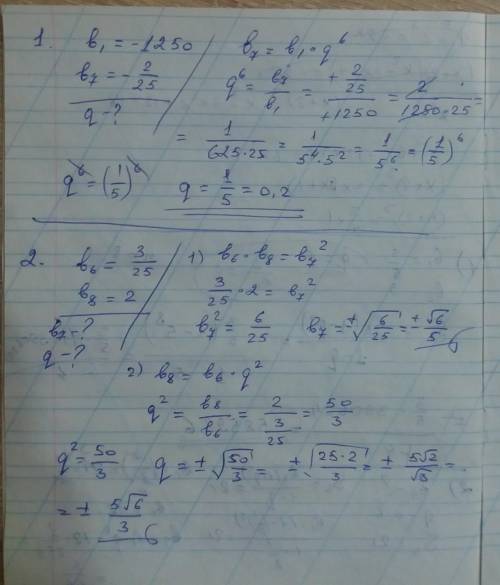 1. b₁ = -1250
b₇ = -2/25
q - ?
b₇ = b₁ · q⁶
q⁶ = b₇/b₁ = (+2/25)/(+1250) = 2/(1250·25) =
= 1/(625·25) = 1/(5⁴·5²) = 1/5⁶ = (1/5)⁶
q⁶ = (1/5)⁶ q = 1/5 = 0,2
2. b₆ = 3/25
b₈ = 2
b₇ - ?
q - ?
1) b₆ · b₈ = b₇²
3/25 · 2 = b₇²
b₇² = 6/25 b₇ = ±√(6/25) = ±√6/5
2) b₈ = b₆ · q²
q² = b₈/b₆ = 2/(3/25) = 50/3
q² = 50/3 q = ±√(50/3) = ±√(25·2/3) = ± 5√2/√3 =
= ± 5√6/3